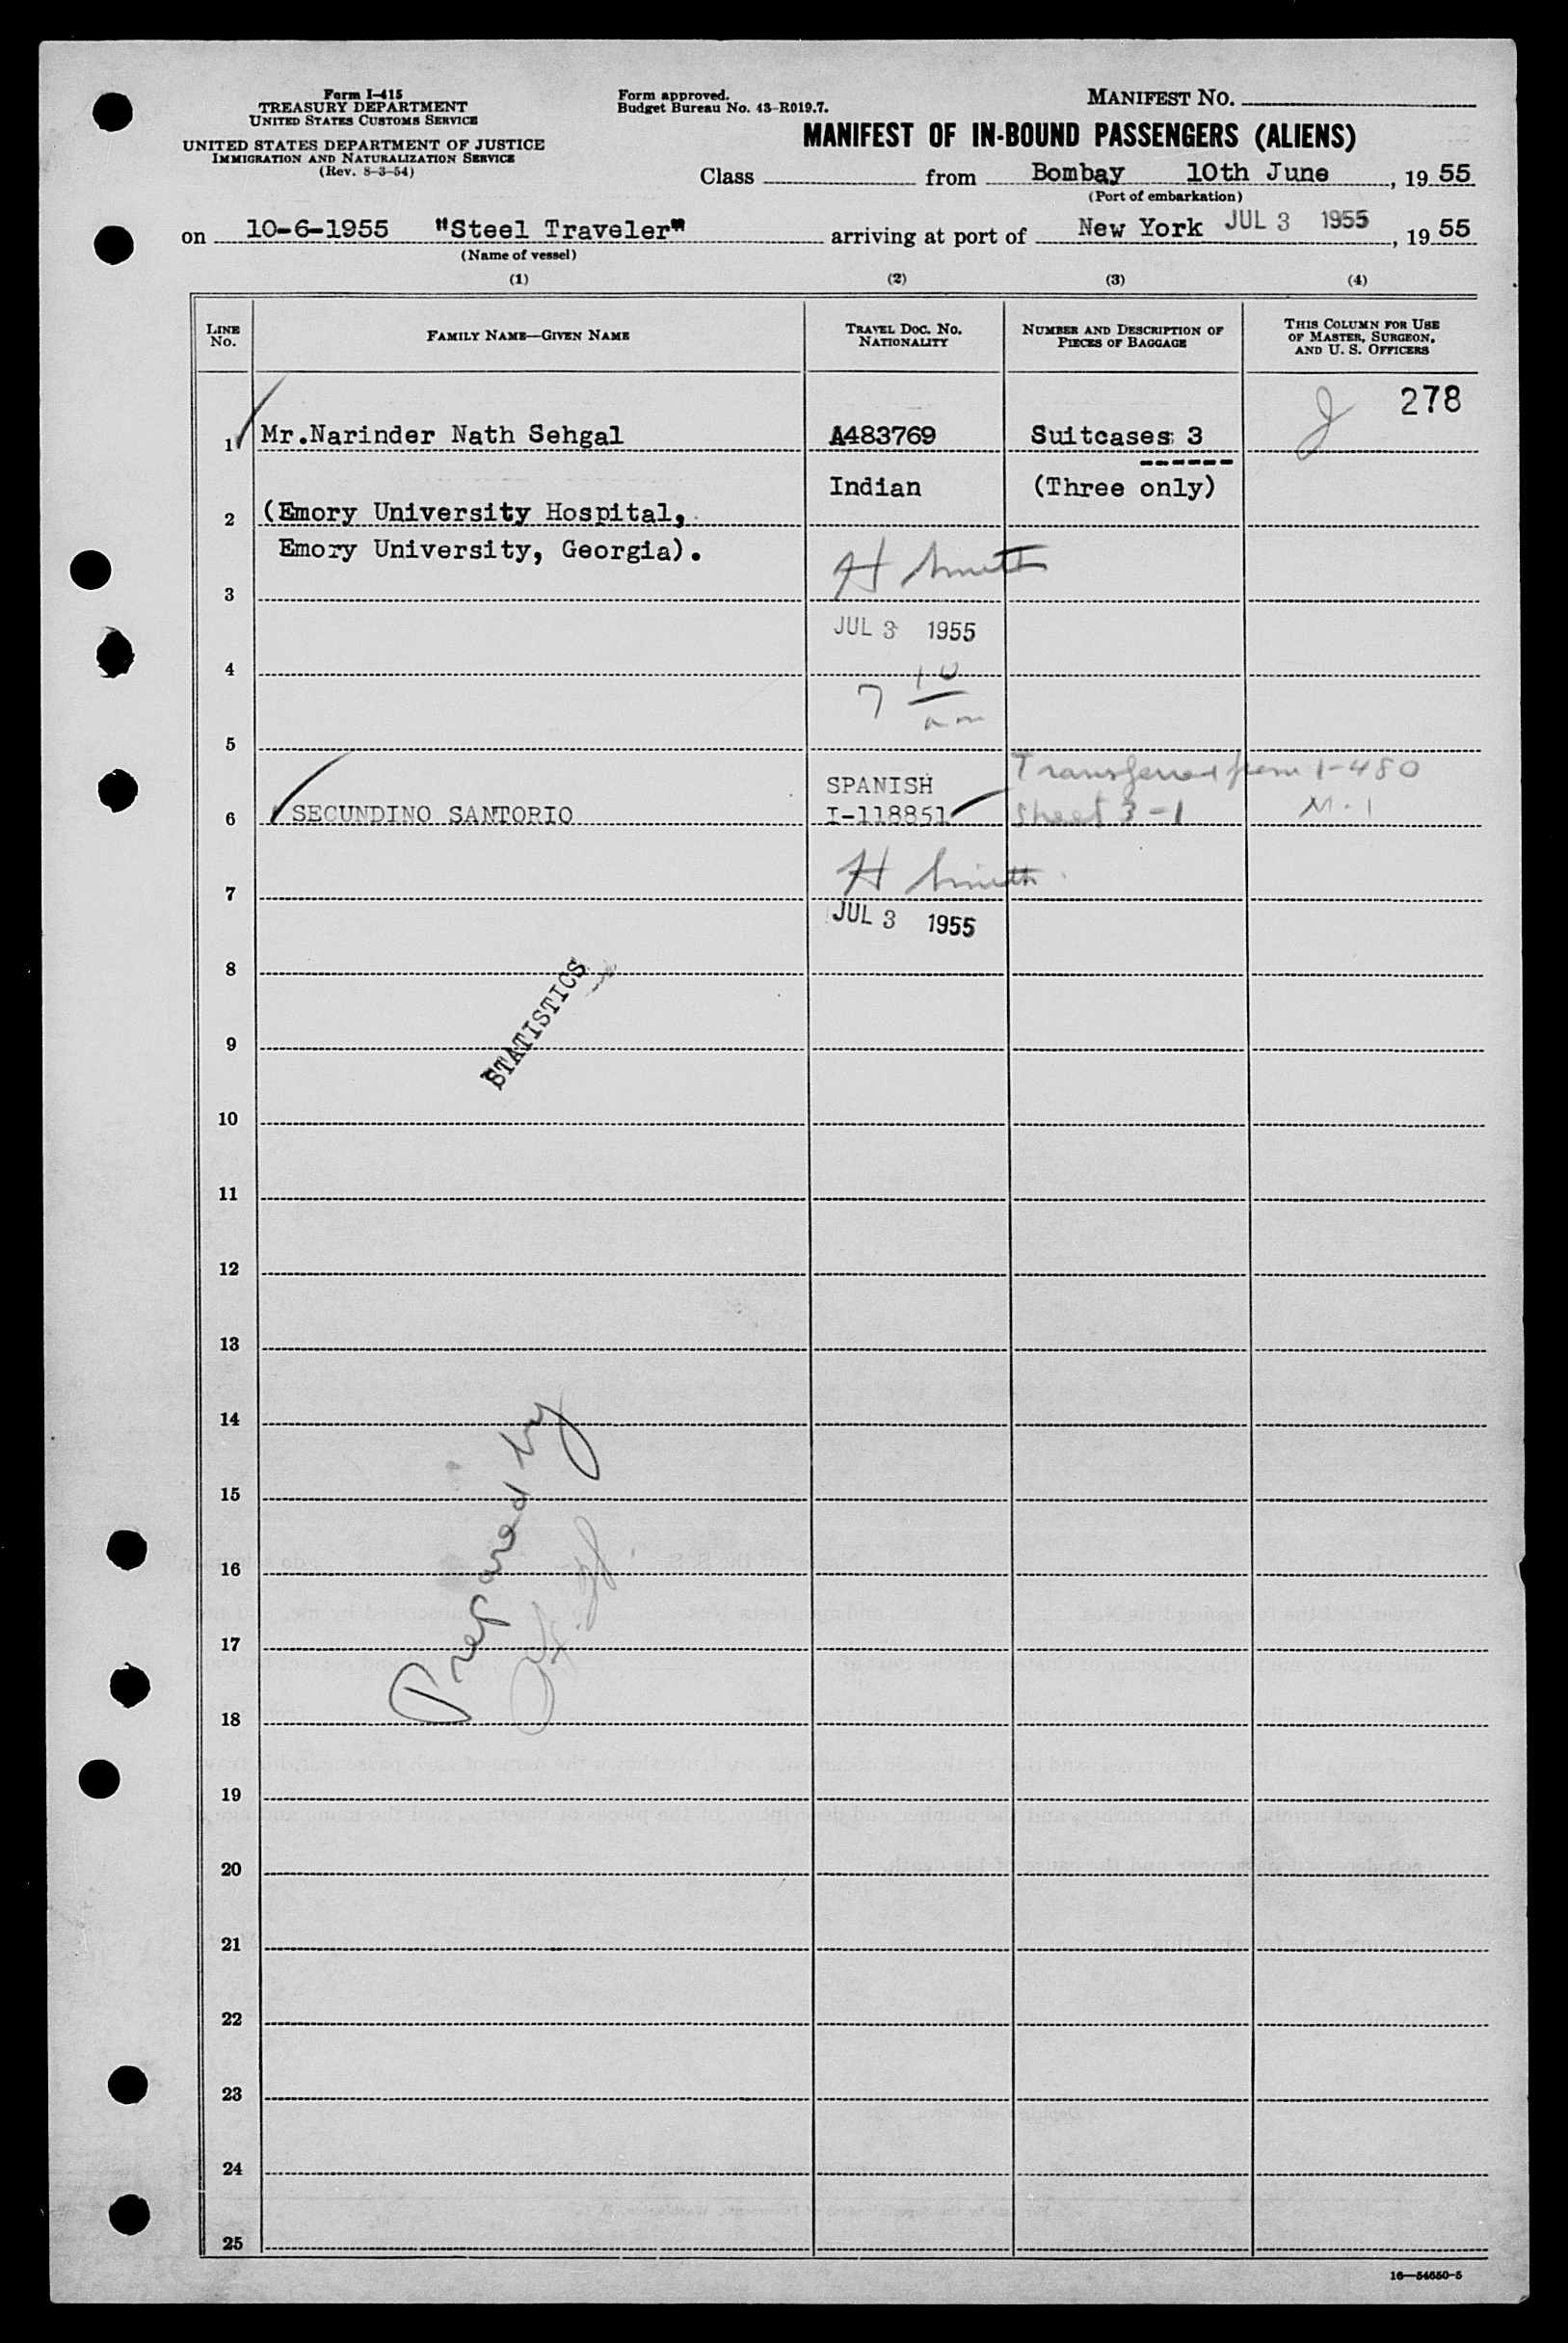 Form I-415
TREASURY DEPARTMENT
UNITED STATES CUSTOMS SERVICE
UNITED STATES DEPARTMENT OF JUSTICE
IMMIGRATION AND NATURALIZATION SERVICE
(Rev. 8-3-54)
Form approved.
Budget Bureau No. 43-R019.7.
MANIFEST NO.
MANIFEST OF IN-BOUND PASSENGERS (ALIENS)
Class from Bombay 10th June, 19 55
(Port of embarkation)
on 10-6-1955 "Steel Traveler" arriving at port of New York JUL 3 1955, 19 55
(Name of vessel)
(1) (2) (3) (4)
LINE No. FAMILY NAME—GIVEN NAME TRAVEL DOC. NO. NATIONALITY NUMBER AND DESCRIPTION OF PIECES OF BAGGAGE THIS COLUMN FOR USE OF MASTER, SURGEON, AND U. S. OFFICERS
278
1 Mr.Narinder Nath Sehgal A483769 Suitcases 3
Indian (Three only)
2 (Emory University Hospital,
Emory University, Georgia).
H Smith
3
JUL 3 1955
4
7 10 am
5
SPANISH Transferred from I-480
6 SECUNDINO SANTORIO I-118851 Sheet 3-1 M.1
H Smith
7
JUL 3 1955
8
STATISTICS
9
10
11
12
13
14
Prepared by
15
16
17
18
19
20
21
22
23
24
25
16—54650-5